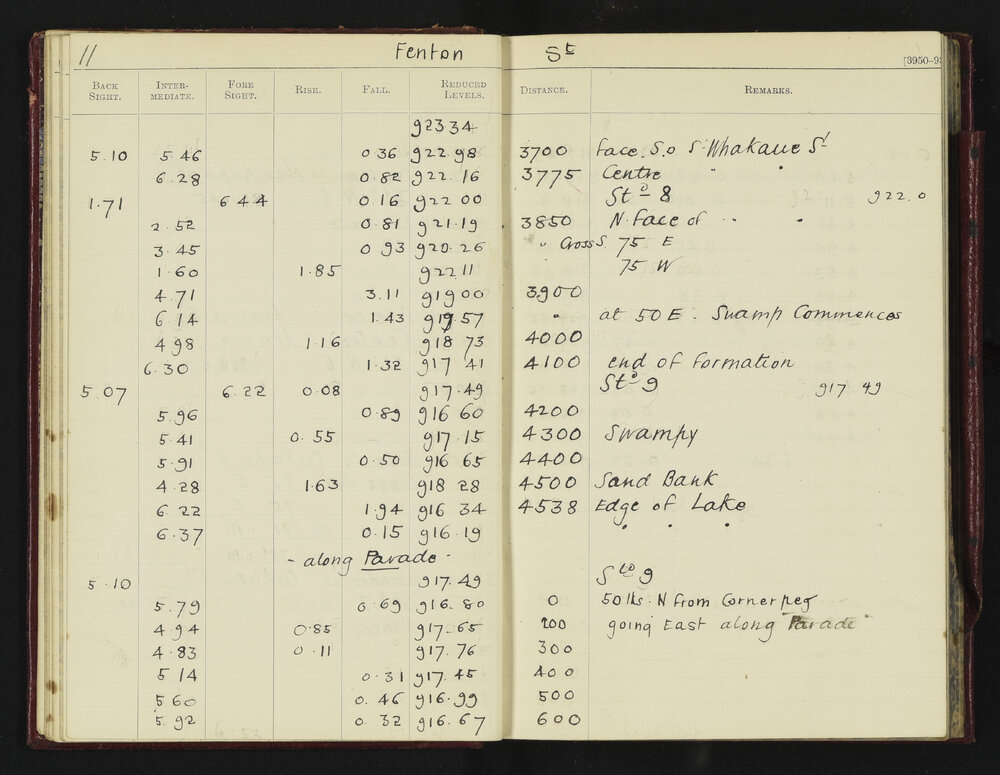 11 Fenton St [3950–9
BACK SIGHT. INTER-MEDIATE. FORE SIGHT. RISE. FALL. REDUCED LEVELS. DISTANCE. REMARKS.
923 34
5.10 5 46 0.36 922.98 3700 face S.o S Whakaue St
6.28 0.82 922.16 3775 Centre " "
1.71 6 44 0.16 922 00 Stn 8 922.0
2.52 0.81 921.19 3850 N. face of " "
3.45 0 93 920.26 " Cross S 75 E
1.60 1.85 922 11 " 75 W
4.71 3.11 919 00 3900
6.14 1.43 917 57 " at 50 E. Swamp Commences
4 98 1.16 918 73 4000
6.30 1.32 917 41 4100 end of formation
5.07 6.22 0.08 917.49 Stn 9 917 49
5.96 0.89 916 60 4200
5.41 0.55 917.15 4300 Swampy
5.91 0.50 916 65 4400
4.28 1.63 918 28 4500 Sand Bank
6 22 1.94 916 34 4538 Edge of Lake
6.37 0.15 916.19 " " "
- along Parade -
5.10 917.49 Stn 9
5.79 0.69 916.80 0 50 lks. N from Corner peg
4 94 0.85 917.65 200 going East along "Parade"
4.83 0.11 917.76 300
5 14 0.31 917.45 400
5 60 0.46 916.99 500
5.92 0.32 916.67 600